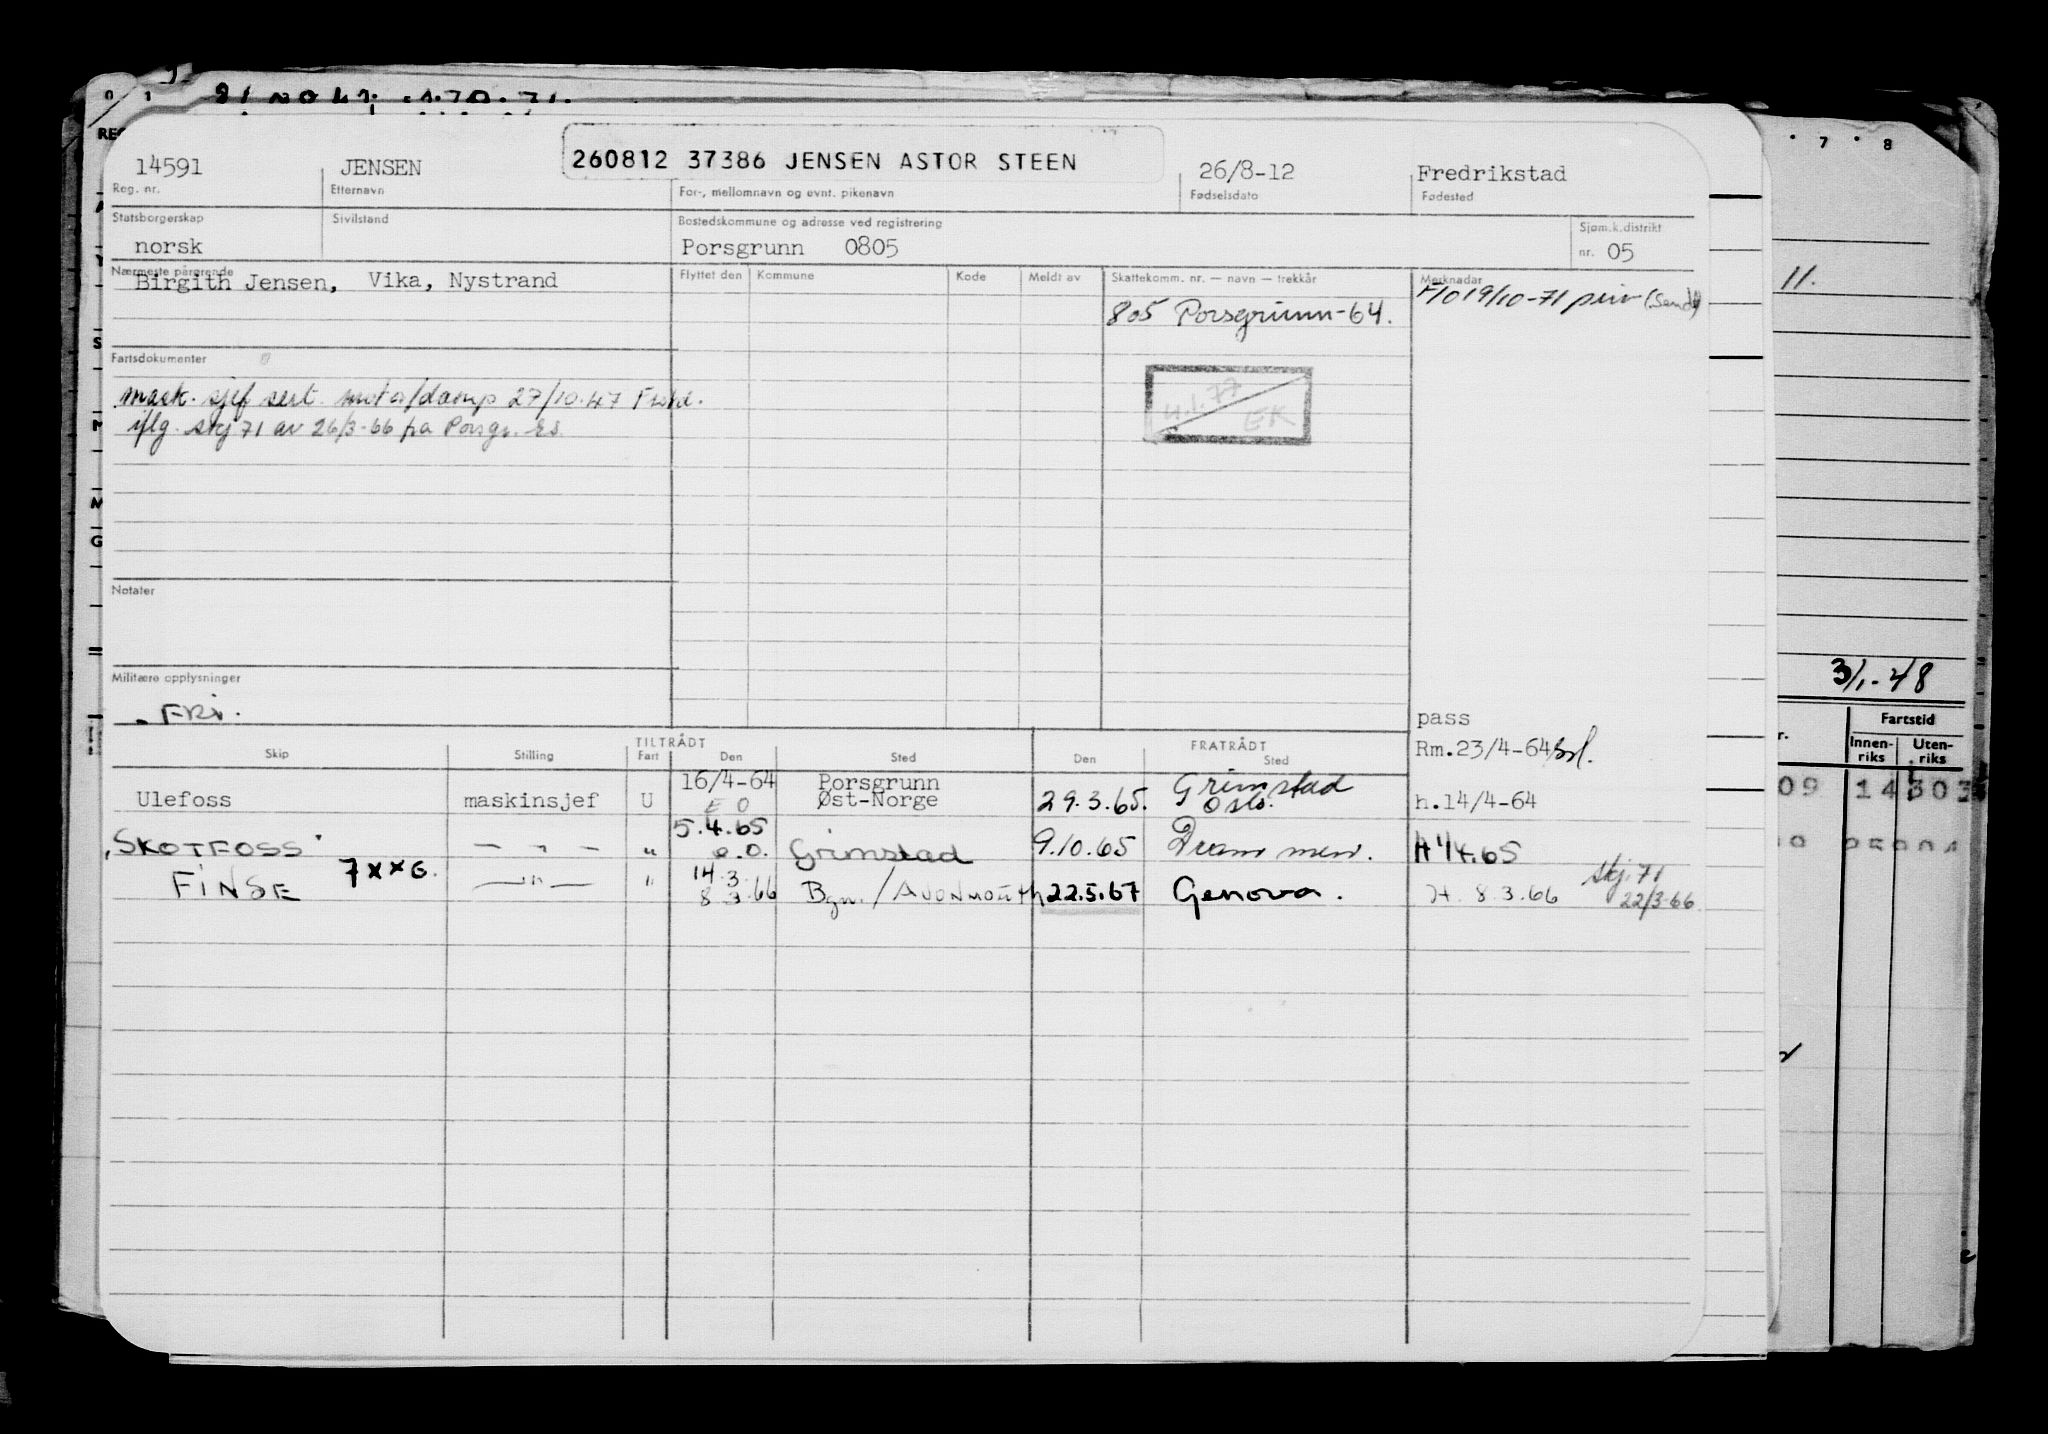 14591 JENSEN 260812 37386 JENSEN ASTOR STEEN 26/8-12 Fredrikstad
Reg. nr. Etternavn For-, mellomnavn og evnt. pikenavn Fødselsdato Fødested
Statsborgerskap Sivilstand Bostedskommune og adresse ved registrering Sjøm.k.distrikt
norsk Porsgrunn 0805 nr. 05
Nærmeste pårørende Flyttet den Kommune Kode Meldt av Skattekomm. nr. — navn — trekkår Merknader
Birgith Jensen, Vika, Nystrand
19/10-71
805 Porsgrunn-64.
Fartsdokumenter
mask. sjef sert. motor/damp 27/10.47
iflg. skj 71 av 26/3-66 fra Porsgr.
4.1.77
EK
Notater
Militære opplysninger
FRi.
pass
TILTRÅDT FRATRÅDT
Skip Stilling Fart Den Sted Den Sted
Rm.23/4-64
Ulefoss maskinsjef U 16/4-64 Porsgrunn Øst-Norge 29.3.65. Grimstad Oslo. h.14/4-64
"SKOTFOSS" — " — " 5.4.65 o.o. Grimstad 9.10.65 Drammen. 65
FINSE 7XXG. — " — " 14.3. 8 3 66 Bgn./AVONMOUTH 22.5.67 Genova. H. 8.3.66 skj.71 22/3-66
11.
3/1-48
Fartstid
Innenriks Utenriks
7 8